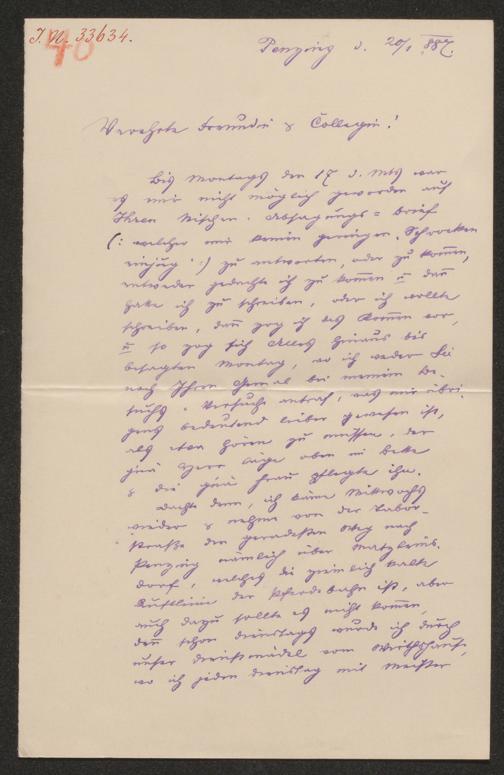 J. N. 33634.
40
Penzing d. 20/1 887.
Verehrte Freundin & Collegin!
Bis Montags den 17 d. Mts war
es mir nicht möglich geworden auf
Ihren Absagungs = Brief
(: welcher mir keinen geringen Schrecken
einjug :) zu antworten, oder zu kommen,
entweder gedachte ich zu kommen u. dan
habe ich zu schreiben, oder ich wollte
schreiben, dan zog ich das Komen vor,
u. so zog sich Alles hinaus bis
besagten Montag, wo ich weder Sie
noch Ihren Gemal bei meinem Be-
suchs = Versuche antraf, was mir übri-
gens bedeutend lieber gewesen ist,
als etwa hören zu müssen, der
gnä Herr läge oben im Bette
& die gnä Frau pflegte ihn.
Dachte denn, ich käme Mittwochs
wieder & nehme von der Labor-
straße den geradesten Weg nach
Penzing nämlich über Matzleins-
dorf, welches die ziemlich kalte
der Pferdebahn ist, aber
auch dazu sollte es nicht komen,
den schon Dienstags wurde ich durch
unser Dienstmädel vom Wirthshause,
wo ich jeden Dienstag mit Meister